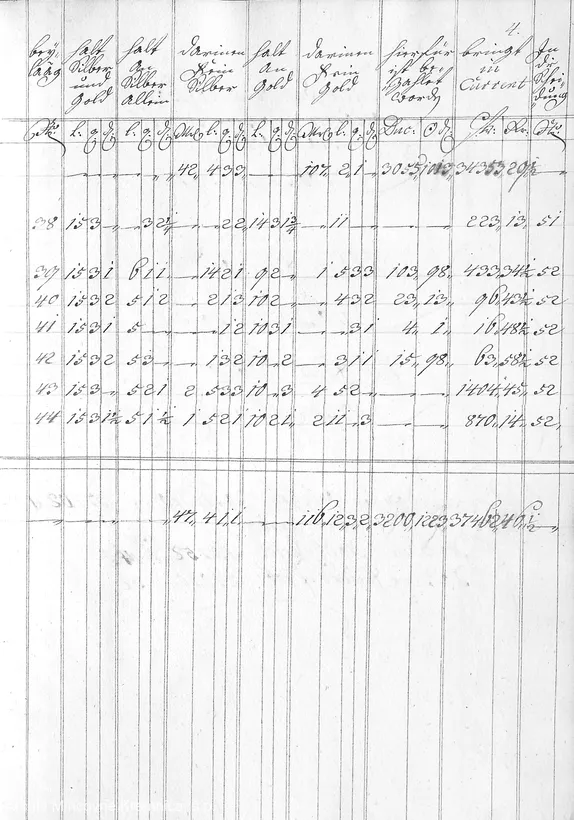 4.
bey- halt halt darinen halt darinen hierfür bringt In
lääg Silber An Fein An Fein ist be- in di
und Silber Silber Gold Gold Zahlet Current Schei-
Gold allein Word dung
No L: q d L: q d M L: q d L: q d M L: q d Duc: d Kr. No
42 4 3 3 107 2 1 3055 34353 29½
38 15 3 3 2¼ 2 2 14 3 1¾ 11 223 13 51
39 15 3 1 6 1 1 14 2 1 9 2 1 5 3 3 103 98 433 34½ 52
40 15 3 2 5 1 2 2 1 3 10 2 4 3 2 23 13 96 43½ 52
41 15 3 1 5 1 2 10 3 1 3 1 4 1 16 48½ 52
42 15 3 2 5 3 1 3 2 10 2 3 1 1 15 98 63 58½ 52
43 15 3 5 2 1 2 5 3 3 10 3 4 5 2 1404 45 52
44 15 3 1½ 5 1 ½ 1 5 2 1 10 2 1 2 11 3 870 14 52
47 4 1 1 116 12 3 2 3200 1223 37462 46½